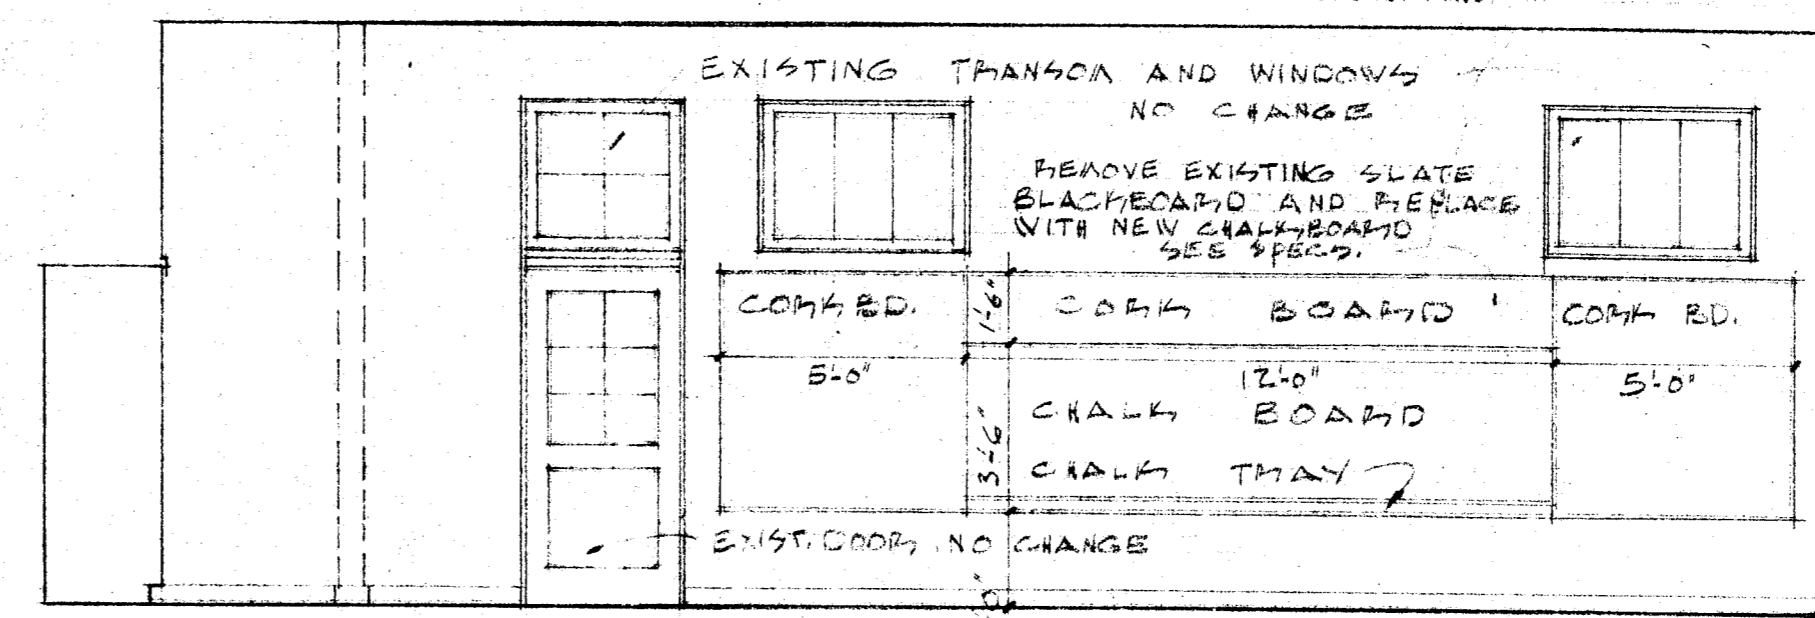 EXISTING TRANSOM AND WINDOWS
NO CHANGE
REMOVE EXISTING SLATE
BLACKBOARD AND REPLACE
WITH NEW CHALKBOARD
SEE SPECS.
CORK BD.
1'-6"
CORK BOARD
CORK BD.
5'-0"
12'-0"
5'-0"
3'-6"
CHALK BOARD
CHALK TRAY
EXIST. DOOR NO CHANGE